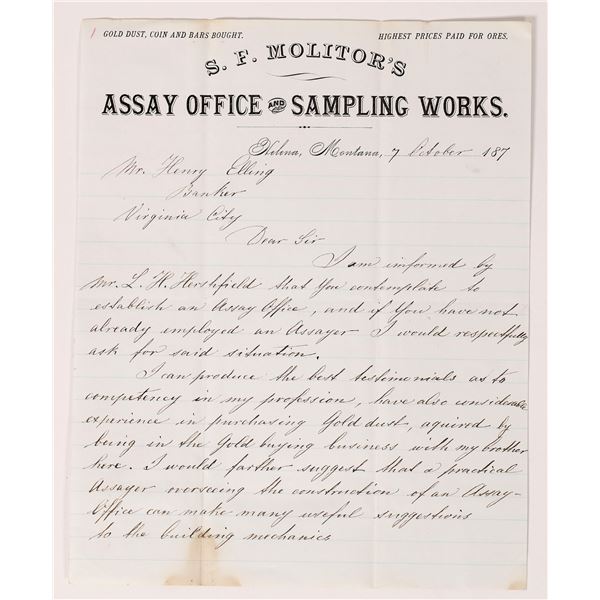 1 GOLD DUST, COIN AND BARS BOUGHT. HIGHEST PRICES PAID FOR ORES.
S. F. MOLITOR'S
ASSAY OFFICE AND SAMPLING WORKS.
Helena, Montana, 7 October 187
Mr. Henry Elling
Banker
Virginia City
Dear Sir
I am imformed by
Mr. L. H. Hershfield that you contemplate to
establish an Assay Office, and if you have not
already employed an Assayer I would respectfully
ask for said situation.
I can produce the best testimonials as to
competency in my profession, have also considerable
experience in purchasing Gold dust, aquired by
being in the Gold buying business with my brother
here. I would farther suggest that a practical
Assayer overseeing the construction of an Assay-
Office can make many useful suggestions
to the building mechanics